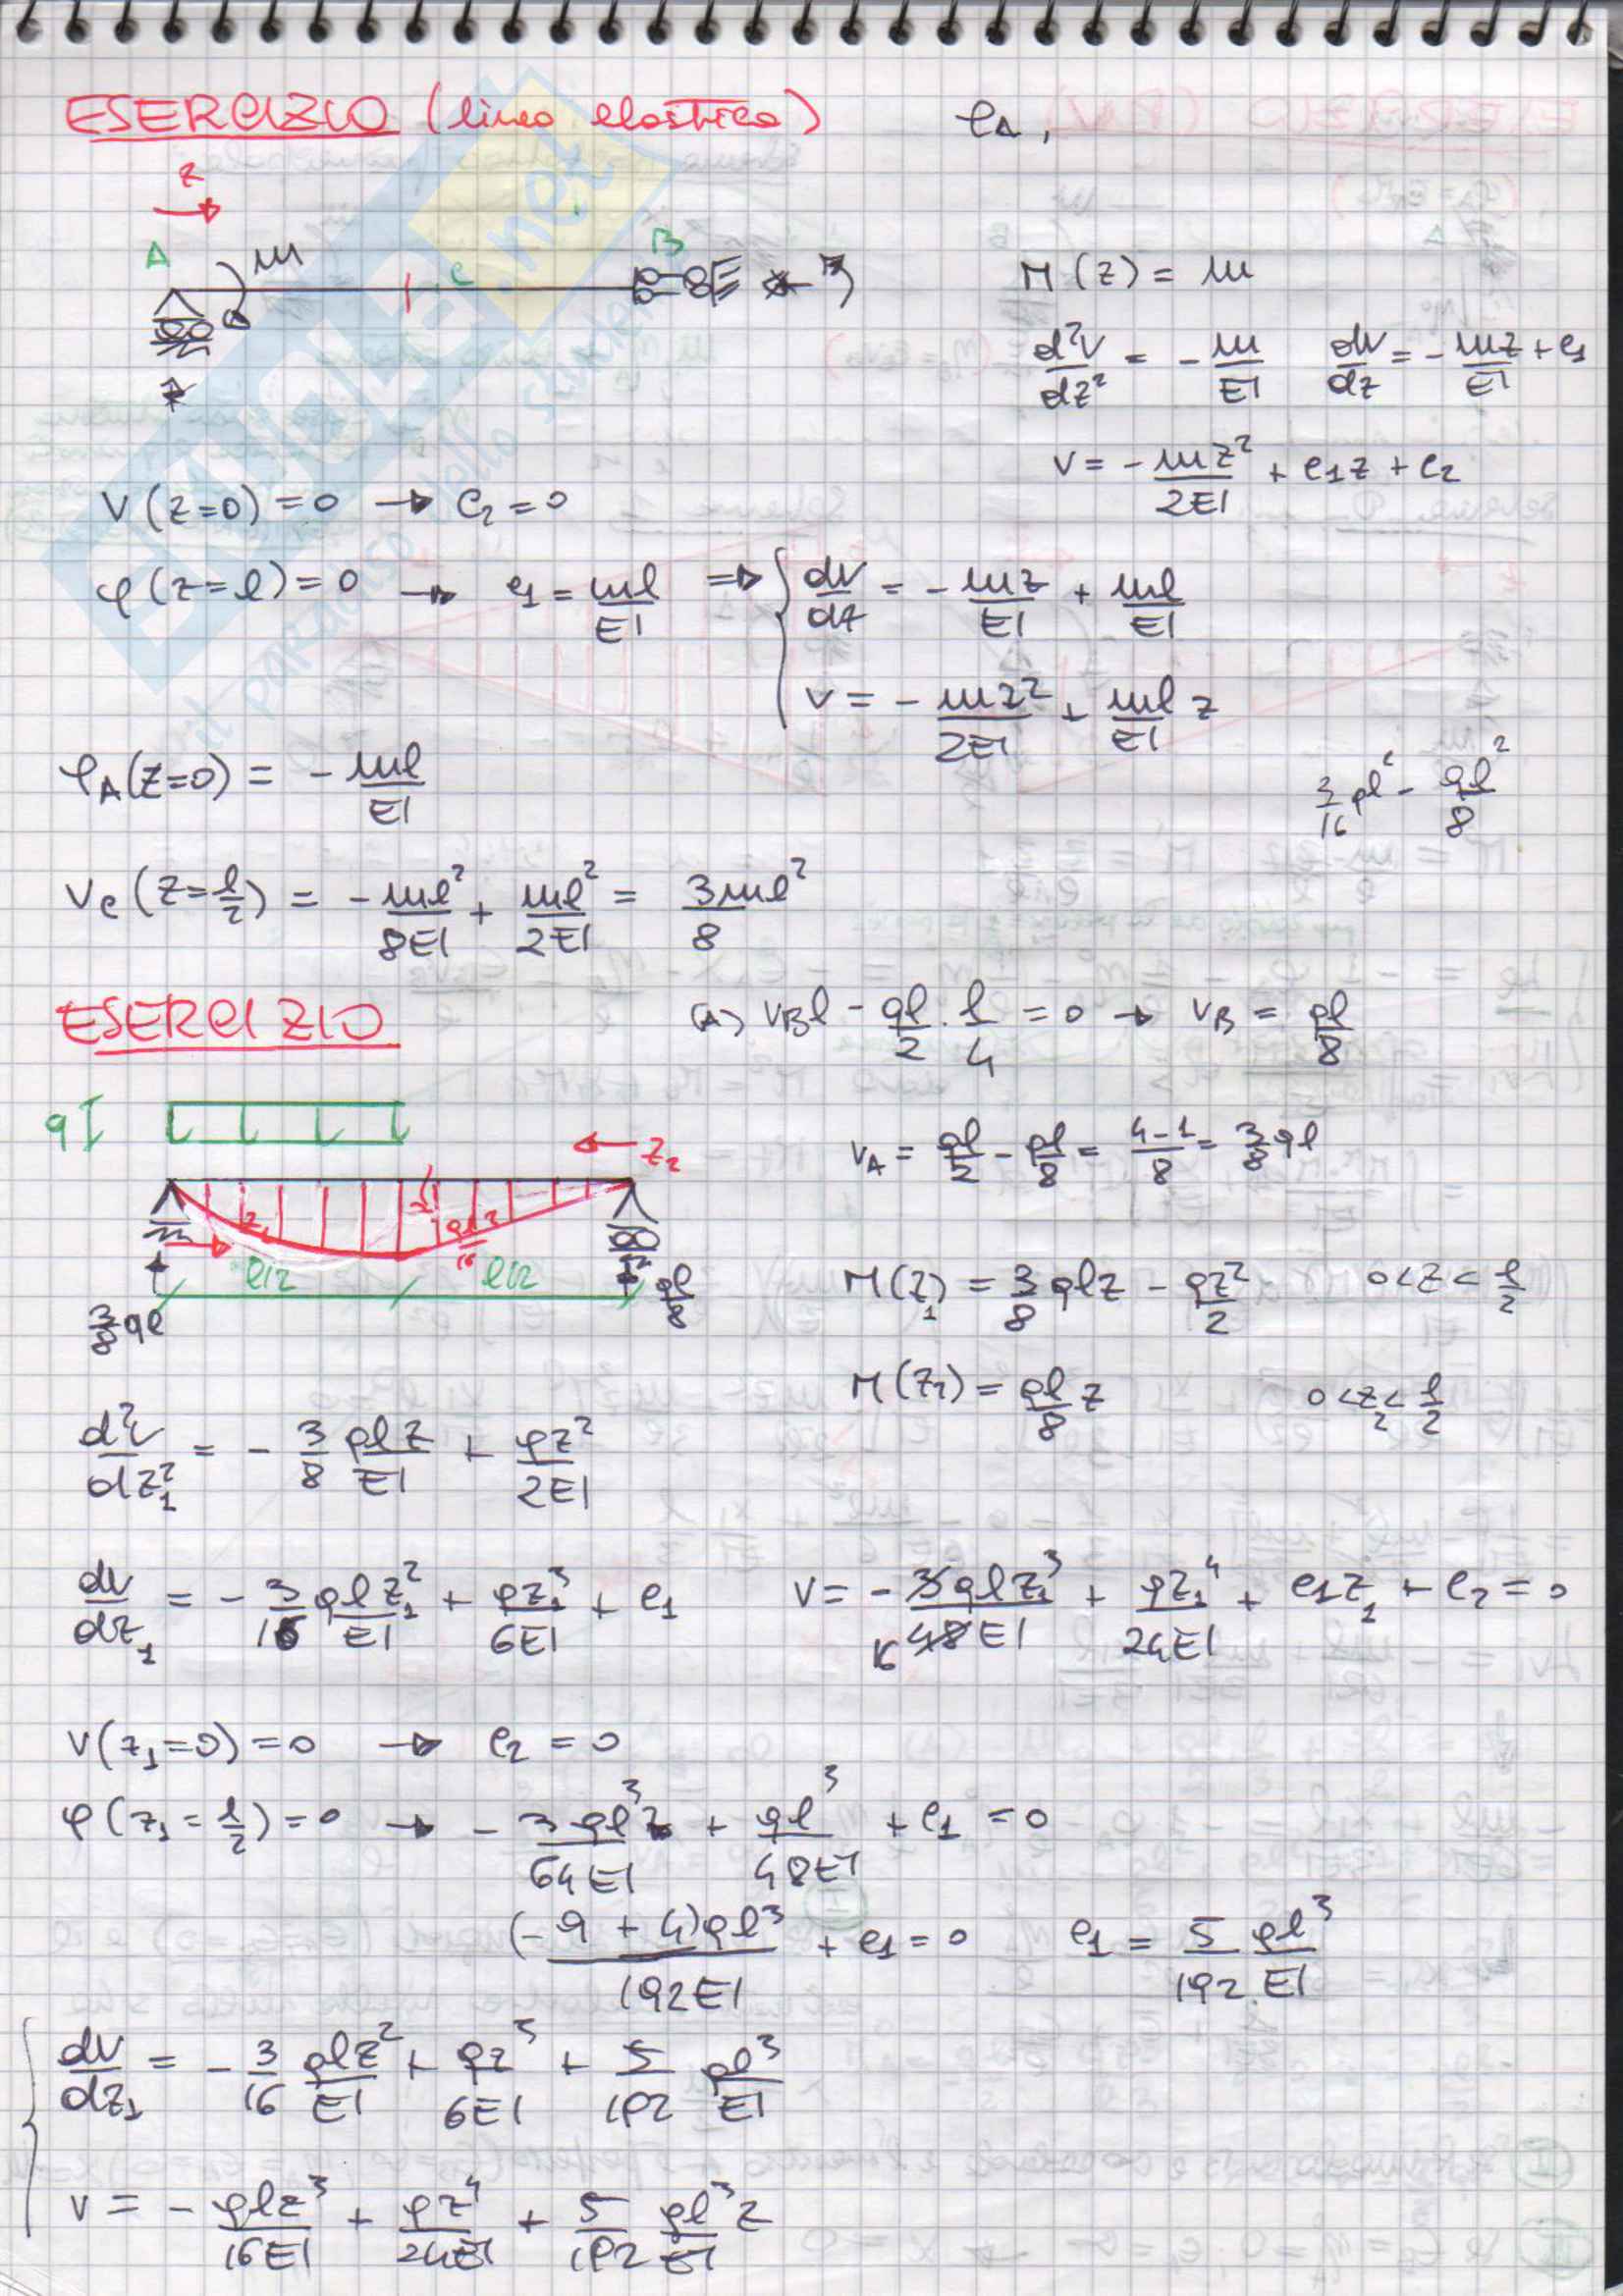 ESERCIZIO (linea elastica) φA,
z
A m C B
M(z) = m
d²v/dz² = - m/EI dv/dz = - mz/EI + c1
v = - mz²/2EI + c1z + c2
v(z=0) = 0 → c2 = 0
φ(z=l) = 0 → c1 = ml/EI ⇒ { dv/dz = - mz/EI + ml/EI
v = - mz²/2EI + ml/EI z
φA(z=0) = - ml/EI
3/16 ql² - ql²/8
vc(z=l/2) = - ml²/8EI + ml²/2EI = 3ml²/8
ESERCIZIO
(A) VBl - ql/2 · l/4 = 0 → VB = ql/8
q
z2
VA = ql/2 - ql/8 = 4-1/8 = 3/8 ql
z1 ql²/16
l/2 l/2
3/8 ql ql/8
M(z1) = 3/8 qlz - qz²/2 0<z<l/2
M(z2) = ql/8 z 0<z2<l/2
d²v/dz1² = - 3/8 qlz/EI + qz²/2EI
dv/dz1 = - 3/16 qlz1²/EI + qz1³/6EI + c1 v = - 3qlz1³/48EI + qz1⁴/24EI + c1z1 + c2 = 0
16
v(z1=0) = 0 → c2 = 0
φ(z1=l/2) = 0 → - 3ql³/64EI + ql³/48EI + c1 = 0
(-9+4)ql³/192EI + c1 = 0 c1 = 5/192 ql³/EI
{ dv/dz1 = - 3/16 qlz²/EI + qz³/6EI + 5/192 ql³/EI
v = - qlz³/16EI + qz⁴/24EI + 5/192 ql³/EI z